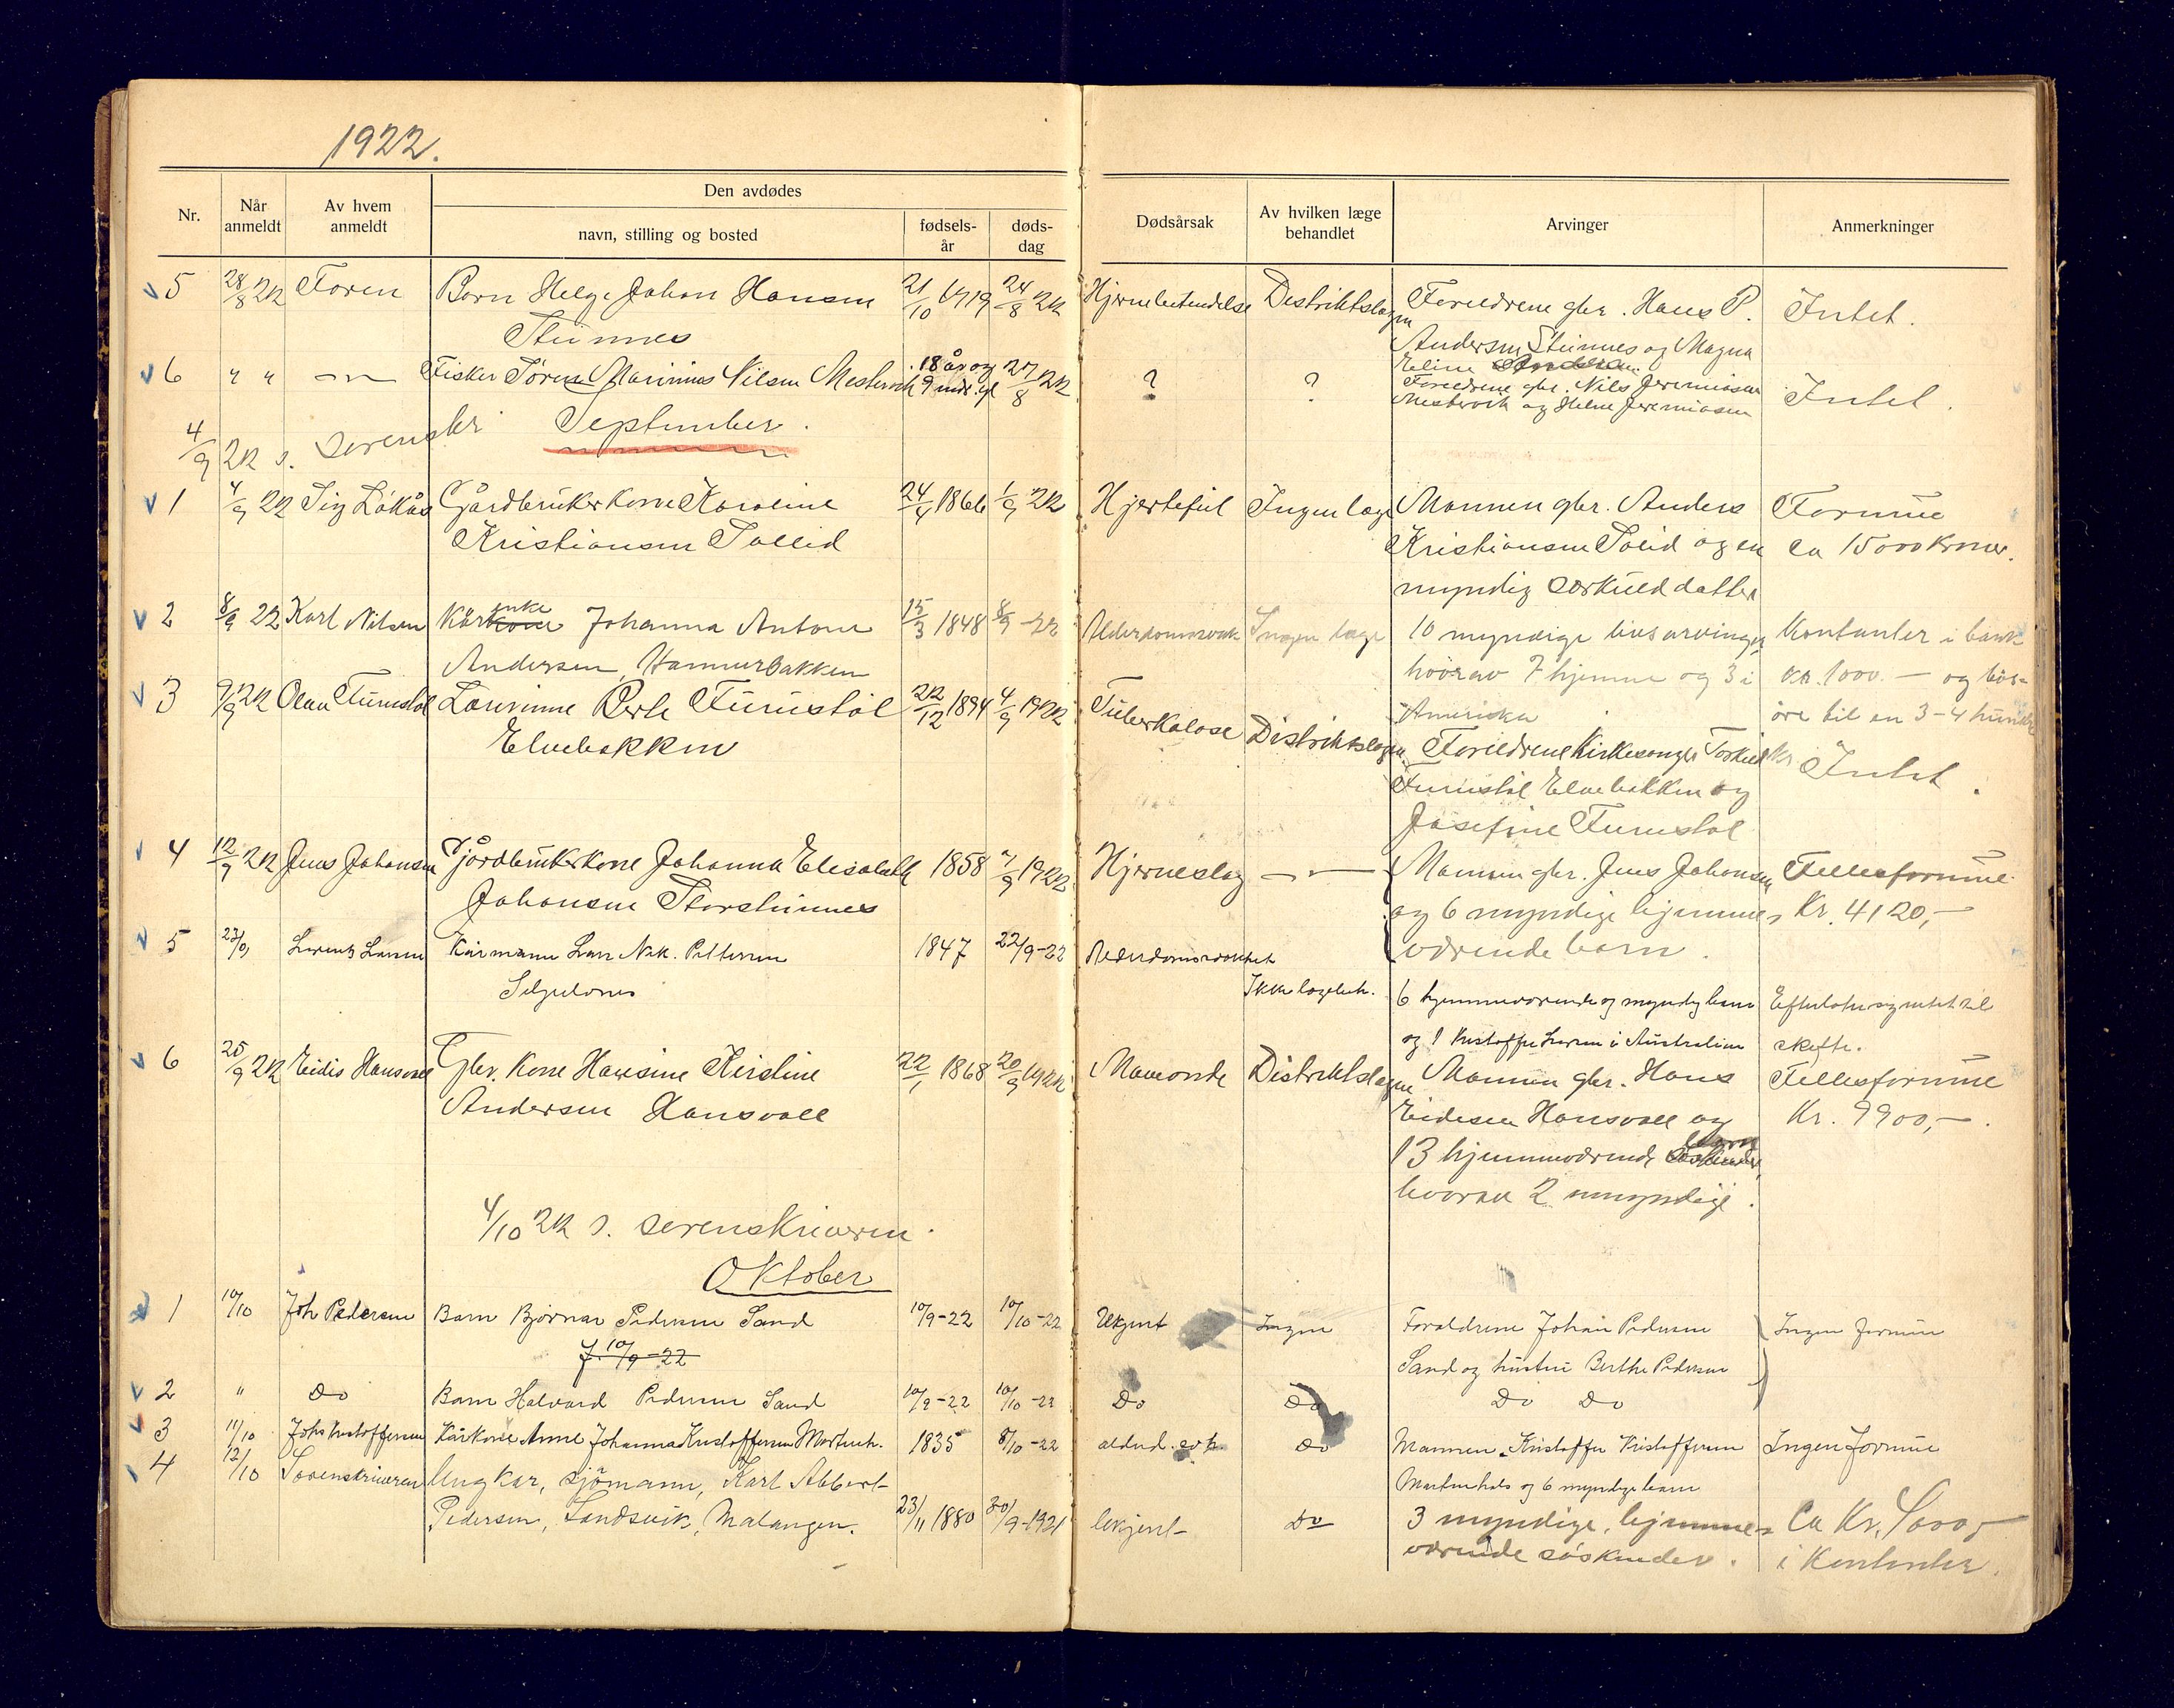 1922.
Nr.
Når anmeldt
Av hvem anmeldt
Den avdødes
navn, stilling og bosted
fødsels-år
døds-dag
Dødsårsak
Av hvilken læge behandlet
Arvinger
Anmerkninger
5 28/8 22 Faren Barn Helge Johan Hansen 21/10 1919 24/8 22 Hjernebetendelse Distriktslægen Foreldrene gbr. Hans P. Intet.
Steinnes Andersen Steinnes og Magna
Eline
6 " " Fisker Marinius Nilsen Mestervik 18 år og 9 mdr. gl 27/8 22 ? ? Foreldrene gbr. Nils Jeremiasen Intet.
Mestervik og Jeremiasen
4/9 22 s. sorenskr September.
1 4/9 22 Sig Gårdbrukerkone Karoline 24/4 1866 1/9 22 Hjertefeil Ingen læge Mannen gbr. Anders Formue
Kristiansen Kristiansen og en ca 15000 kroner.
myndig særkuld datter
2 8/9 22 Karl Nilsen Kårkone enke Johanna Antone 15/3 1848 8/9 -22 Alderdomssvak Ingen læge 10 myndige livsarvinger, Kontanter i bank
Andersen, Hamnerbakken hvorav 7 hjemme og 3 i kr. 1000.- og løs-
Amerika øre til en 3-4 hundre kr
3 9/9 22 Olav Furustøl Berle Furustøl 22/12 1894 4/9 1922 Tuberkulose Distriktslægen Foreldrene Kirkesanger Intet.
Elvebakken Furustøl Elvebakken og
Josefine Furustøl
4 12/9 22 Jens Johansen Gårdbrukerkone Johanna Elisabeth 1858 7/9 1922 Hjerneslag Mannen gbr. Jens Johansen Fellesformue
Johansen Storsteinnes og 6 myndige hjemme- Kr. 4120,-
værende barn.
5 23/9 Kårmann Lars Nik. Pettersen 1847 22/9-22 Alderdomssvakhet
Ikke lægebeh. 6 hjemmeværende og myndig barn
og 1 i Australien skifte.
6 25/9 22 Eidis Hansvoll Gbr. kone Hansine Kirstine 22/1 1868 20/9 1922 Distriktslægen Mannen gbr. Hans Fellesformue
Andersen Hansvoll Eidesen Hansvoll og Kr. 9900,-.
13 hjemmeværende barn
hvorav 2 myndige.
4/10 22 s. sorenskriveren.
Oktober
1 10/10 Joh Pedersen Barn Bjørnar Pedersen Sand 10/9-22 10/10-22 Ukjent Ingen Foreldrene Johan Pedersen Ingen formue
f. 10/9-22 Sand og hustru Berthe Pedersen
2 " Do Barn Halvard Pedersen Sand 10/9-22 10/10-22 Do Do Do Do
3 11/10 Johs Kristoffersen Kårkone Anne Johanna Kristoffersen 1835 8/10-22 Do Mannen Kristoffer Kristoffersen Ingen formue
og 6 myndige barn
4 12/10 Sorenskriveren Ungkar, sjømann, Karl Albert
Pedersen, Sandsvik, Malangen. 23/11 1880 30/9-1921 Ukjent Do 3 myndige, hjemme- Ca Kr.
værende søskender. i kontanter.